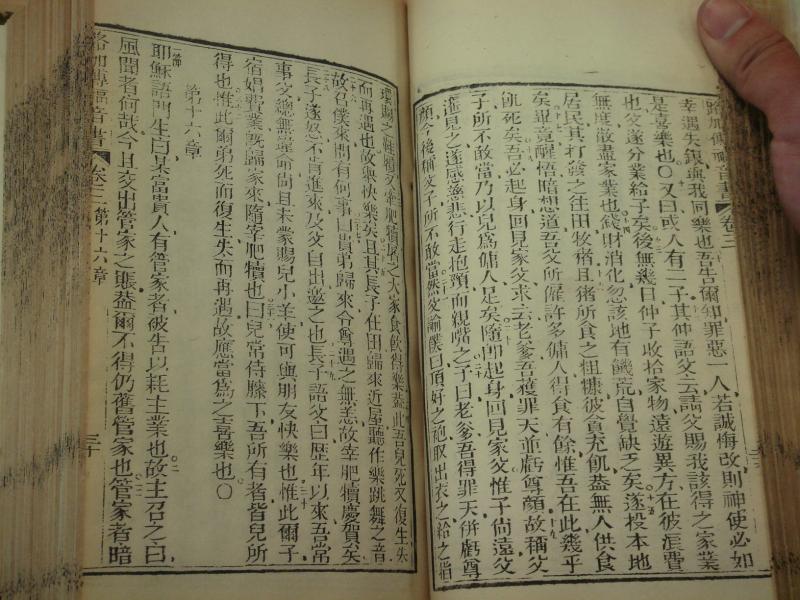 路加傳福音書 卷三
幸遇失銀與我同樂也吾告爾知罪惡一人若誠悔改則神使必如
是喜樂也○又曰或人有二子其仲語父云請父賜我該得之家業
也父遂分業給子矣後無幾日仲子收拾家物遠遊異方在彼浪費
無度散盡家業也錢財消化忽該地有饑荒自覺缺乏矣遂投本地
居民其打發之往田牧猪且猪所食之粗糠彼貪充飢葢無人供食
矣畢竟醒悟暗想道吾父所僱許多傭人得食有餘惟吾在此幾乎
飢死矣吾必起身回見家父求云老爹吾獲罪天並虧尊顏故稱父
子所不敢當乃以兒爲傭人足矣隨即起身回見家父惟子尚遠父
遙見之遂感慈悲行走抱頸而親嘴之子曰老爹吾得罪天併虧尊
顏今後稱父子所不敢當然父諭僕曰頂好之袍取出衣之給之指
環賜之鞋宰肥犢之大家食飲得樂葢此吾兒死又復生失
而再遇也故快樂矣且其長子在田歸來近屋聽作樂跳舞之音
故召僕來問有何事曰貴弟歸來令尊遇之無恙故宰肥犢慶賀矣
長子遂怒不肯進來及父自出邀之也長子語父曰歷年以來吾常
事父總無違命尚且未蒙賜兒小羊使可與朋友快樂也惟此爾子
宿娼費業旣歸家來隨宰肥犢也曰兒常侍膝下吾所有者皆兒所
得也惟此爾弟死而復生失而再遇故應當爲之喜樂也○
第十六章
耶穌語門生曰某富貴人有管家者彼告以耗主業也故主召之曰
風聞者何哉今且交出管家之賬葢爾不得仍舊管家也管家者暗
路加傳福音書 卷三 第十六章 三十